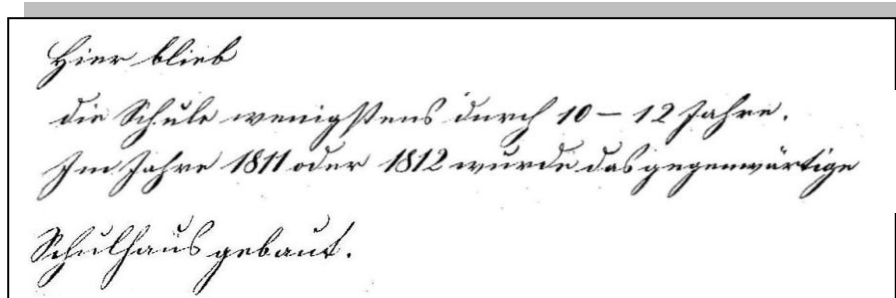 Hier blieb
die Schule wenigstens durch 10 – 12 Jahre.
Im Jahre 1811 oder 1812 wurde das gegenwärtige
Schulhaus gebaut.